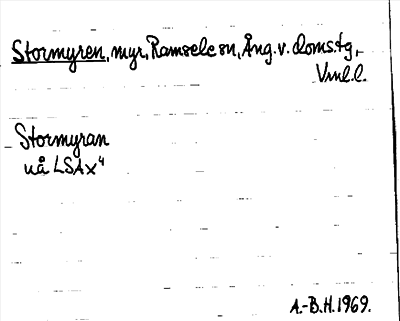 Stormyren, myr, Ramsele sn, Ång. v. domstg,
Vnl. l.
Stormyran
uå LSAx⁴
A.-B.H. 1969.